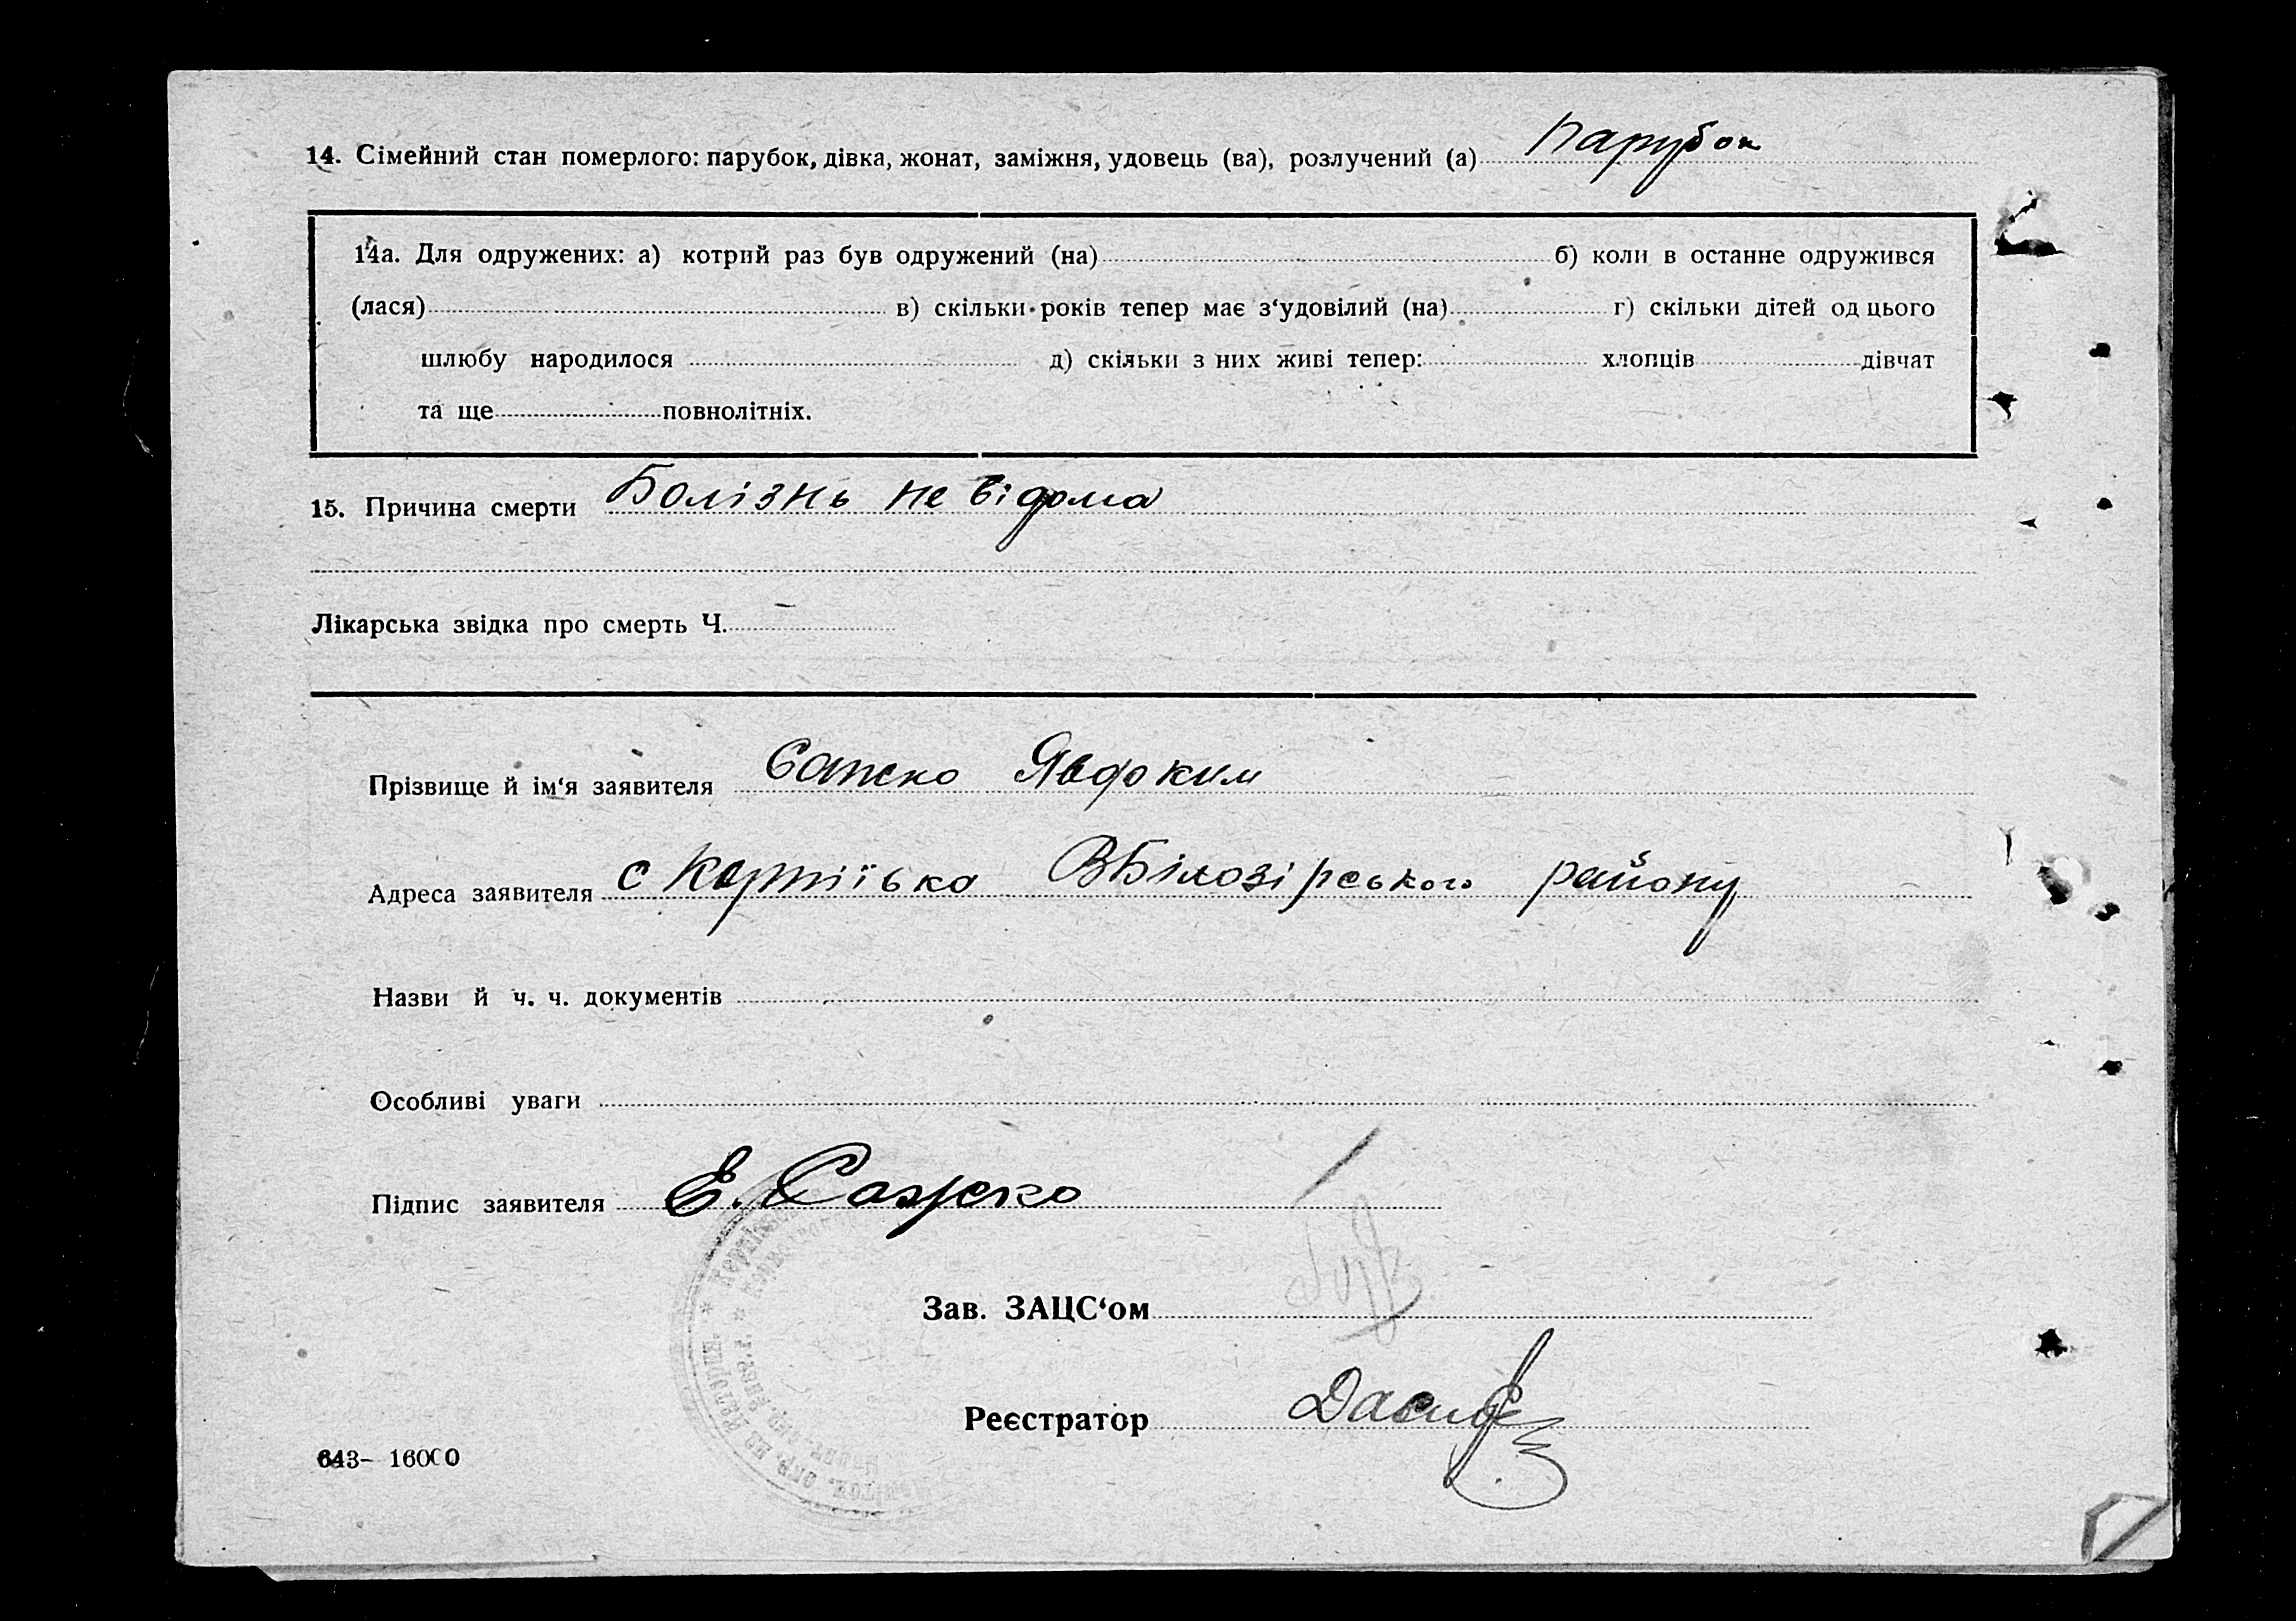 14. Сімейний стан померлого: парубок, дівка, жонат, заміжня, удовець (ва), розлучений (а) парубок
14а. Для одружених: а) котрий раз був одружений (на) б) коли в останне одружився
(лася) в) скільки років тепер має з‘удовілий (на) г) скільки дітей од цього
шлюбу народилося д) скільки з них живі тепер: хлопців дівчат
та ще повнолітніх.
15. Причина смерти Болізнь не відома
Лікарська звідка про смерть Ч. —
Прізвище й ім‘я заявителя Сажко Явфоким
Адреса заявителя с В Білозірського району
Назви й ч. ч. документів
Особливі уваги
Підпис заявителя Е. Сажско
Зав. ЗАЦС‘ом
Реєстратор
643– 16000